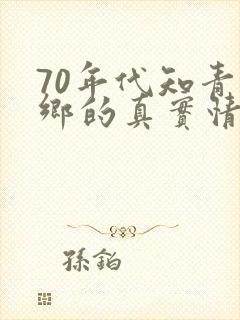 70年代知青
鄉的真實情
孫鉑